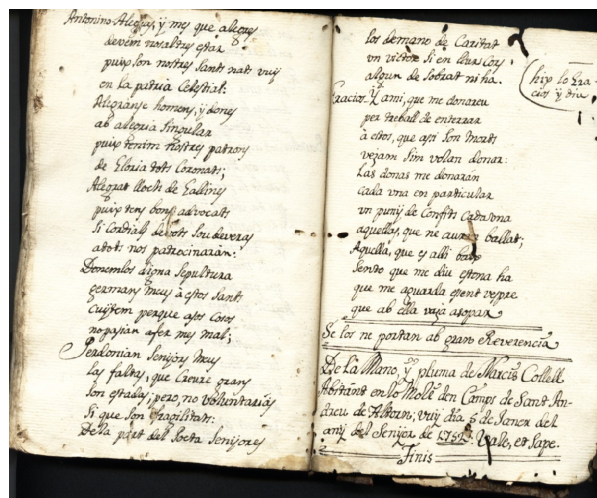 Antonino Alegres, y mes que alegres
devem nosaltres estar
puix son nostres Sants nats vuy
en la patria Celestial:
Alegranse homens, y dones
ab alegria singular
puix tenim nostres patrons
de Gloria tots Coronats;
Alegrat lloch de Galliners
puix tens bons advocats
Si Cordials devots sou deveras
a tots nos patrocinaran:
Donemlos digna Sepultura
germans meus à estos Sants
Cuytem perque assos Cosos
no pasian afer mes mal;
Perdonian Senyors meus
las faltas, que Crenre grans
son estadas; pero, no voluntarias
Si que son fragilitats:
De la part del Poeta Senyores
los demano de Caritat
vn victor Si en llurs Cors
algun de Sobrat ni ha.
hix lo Gra
cios y diu
Gracios. Y ami, que me donareu
per treball de enterrar
à estos, que assi son morts
vejam Sim volan donar:
Las donas me donaran
Cada vna en particular
vn puny de Confits Cada vna
aquellas, que ne auran ballat;
Aquella, que es alli baix
Sento que me diu estona ha
que me aguarda esent vespre
que ab ella vaja asopar
Se los ne portan ab gran Reverencia
De La Mano, y pluma de Narcis Collell
Abitant en lo Molí den Camps de Sant An-
dreu de ; vuy dia 5 de Janer del
any del Senyor de 1752. Vale, et Sape.
Finis